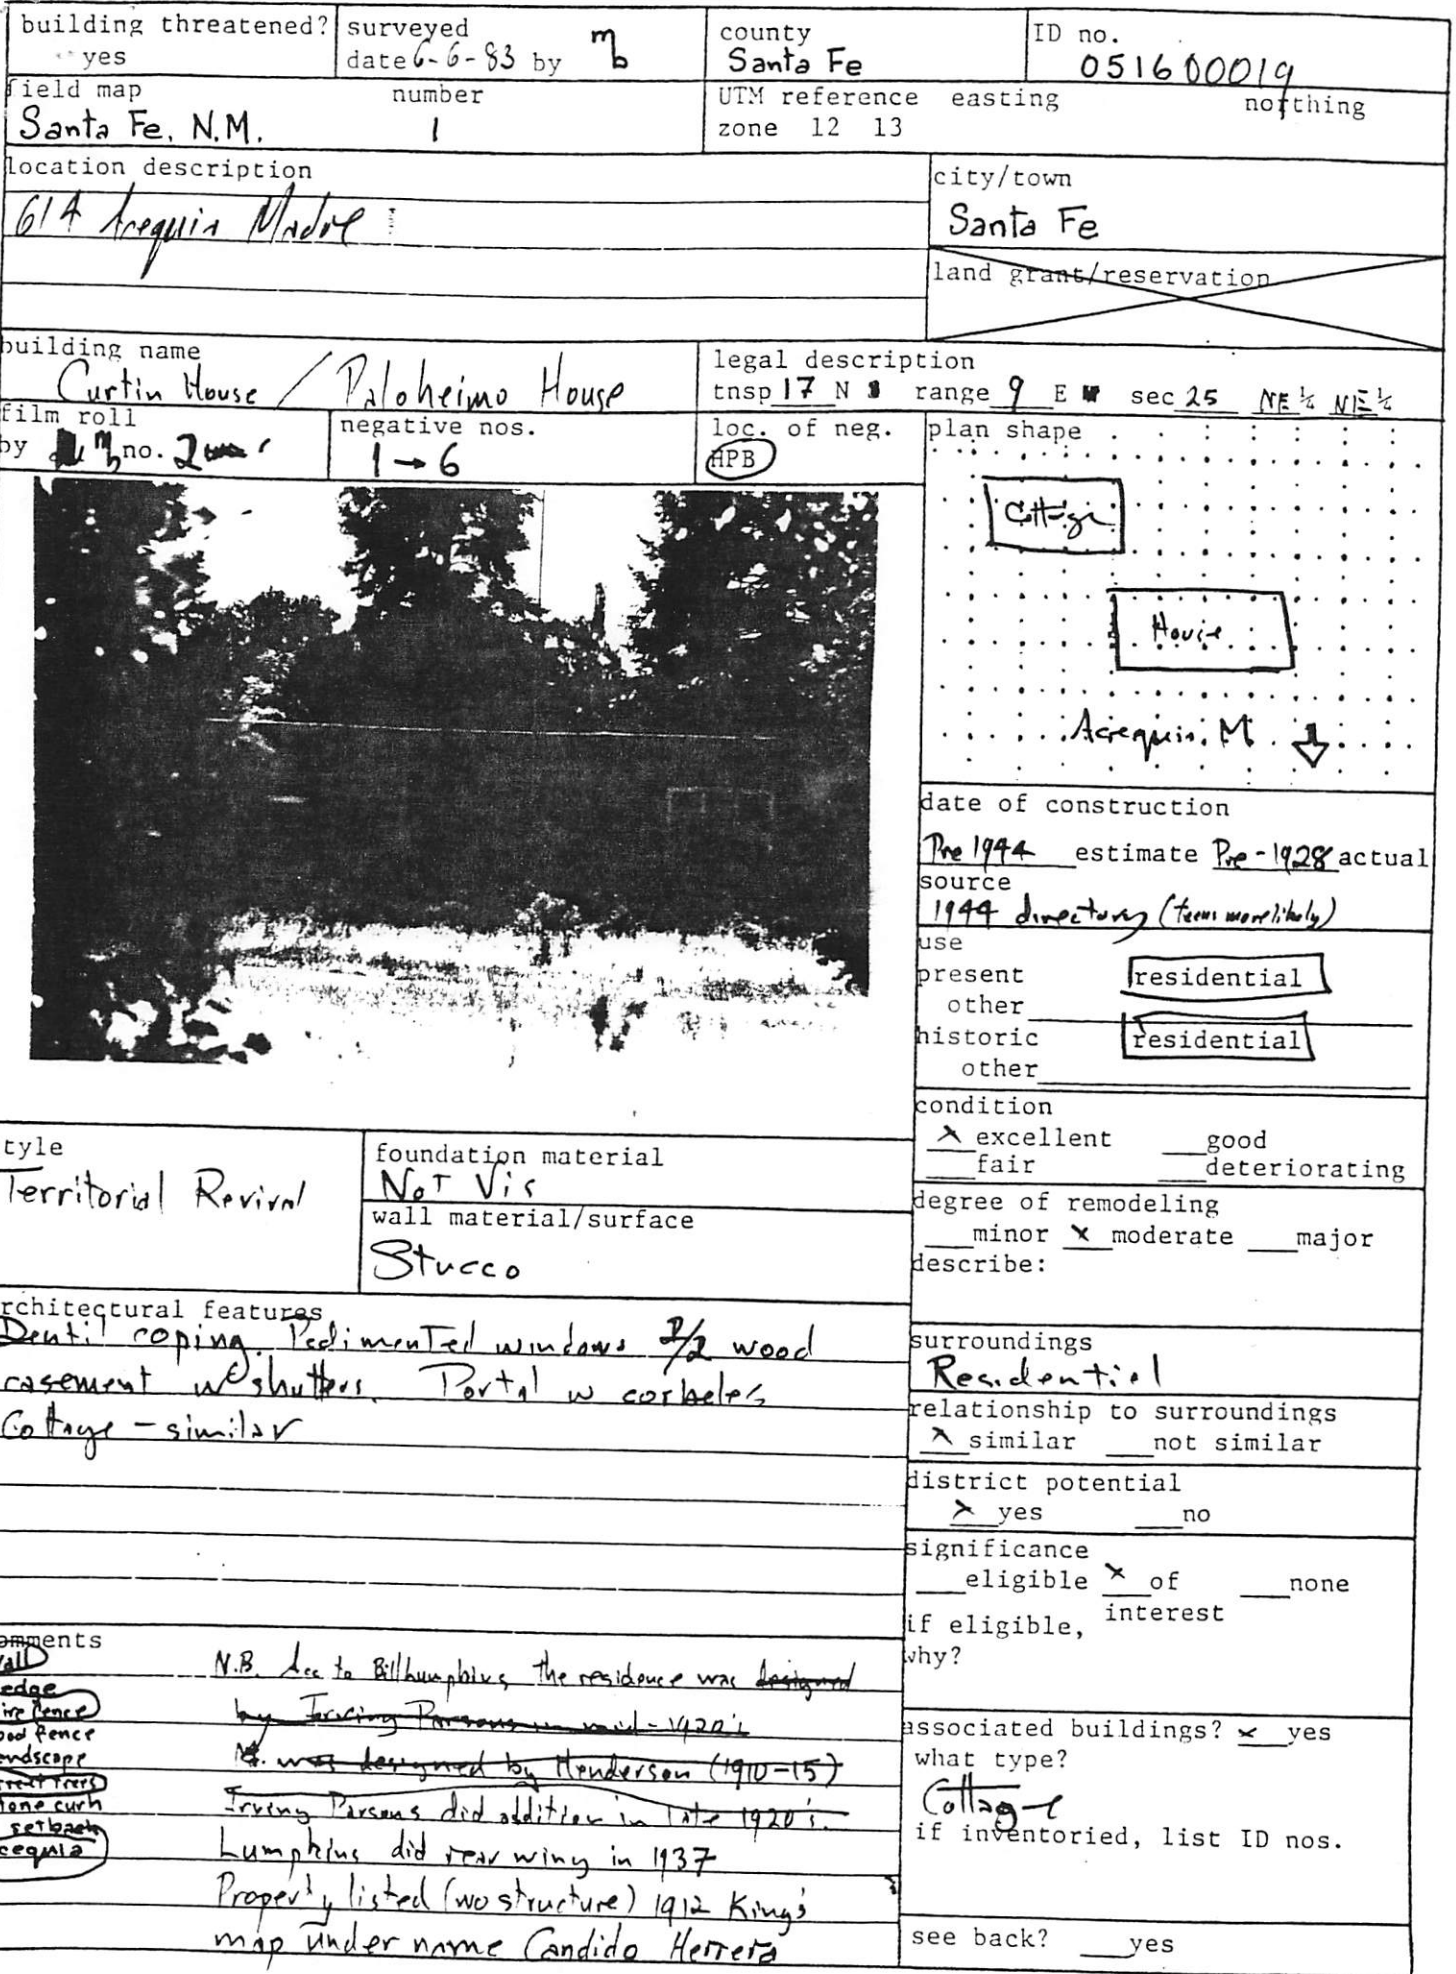 building threatened? yes
surveyed date 6-6-83 by mb
county Santa Fe
ID no. 051600019
field map Santa Fe, N.M. number 1
UTM reference easting northing
zone 12 13
location description
614 Acequia Madre
city/town
Santa Fe
land grant/reservation
building name
Curtin House / Paloheimo House
legal description
tnsp 17 N range 9 E sec 25 NE ¼ NE ¼
film roll
by mb no. 2
negative nos.
1→6
loc. of neg.
HPB
plan shape
Cottage
House
Acequia M.
date of construction
Pre 1944 estimate Pre-1928 actual
source
1944 directory (teens more likely)
use
present residential
other
historic residential
other
condition
x excellent good
fair deteriorating
degree of remodeling
minor x moderate major
describe:
surroundings
Residential
relationship to surroundings
x similar not similar
district potential
x yes no
significance
eligible x of interest none
if eligible,
why?
associated buildings? x yes
what type?
Cottage
if inventoried, list ID nos.
see back? yes
tyle
Territorial Revival
foundation material
Not Vis
wall material/surface
Stucco
rchitectural features
Dentil coping. Pedimented windows 2/2 wood
casement w shutters. Portal w corbels
Cottage - similar
omments
all
edge
ire fence
ood fence
andscape
treet trees
tone curb
setback
cequia
N.B. Acc to Bill Lumpkins the residence was designed
by Irving Parsons in mid-1920's
was designed by Henderson (1910-15)
Irving Parsons did addition in late 1920's.
Lumpkins did rear wing in 1937
Property listed (wo structure) 1912 King's
map under name Candido Herrera